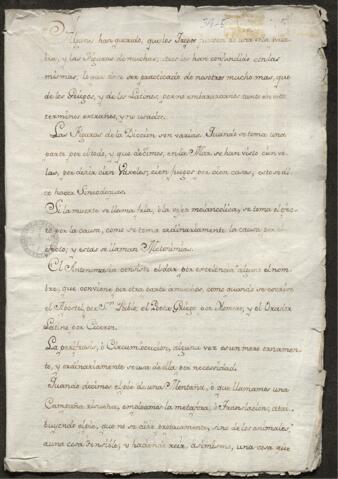 Algunos han querido, que los Tropos
bra, y las Figuras de muchas; otros los han confundido
mismas; lo que debe ser practicado de nosotros mucho mas, que
de los Griegos, y de los Latinos, por no embarazarnos tanto en estos
terminos extraños, y no usados.
Las Figuras de la Diccion son varias. Quando se toma una
parte por el todo, y que decimos, en la Mar se han visto cien ve-
las, por decir cien Vaxeles; cien fuegos por cien casas; esto se di-
ce hacer Sinecdoques.
Si la muerte se llama palida, ó la vejez melancolica, se toma el efec-
to por la causa, como se toma ordinariamente la causa por el
efecto; y estas se llaman Metonimias.
El Antonomasia consiste el dar por excelencia alguno el nom-
bre, que conviene por otra parte a muchos, como quando se escribe
el Apostol, por Sn. Pablo; el Poeta Griego por Homero, y el Orador
Latino por Ciceron.
La perifrasis, ó Circumlocucion, alguna vez es un mero ornamen-
to, y ordinariamente se usa de ella por necesidad.
Quando decimos el pie de una Montaña, ó que llamamos una
Campaña risueña, empleamos la metafora, ó Translacion, atri-
buyendo el pie, que no se dice propiamente, sino de los animales
a una cosa insensible; y haciendo reir, asimismo, una cosa que